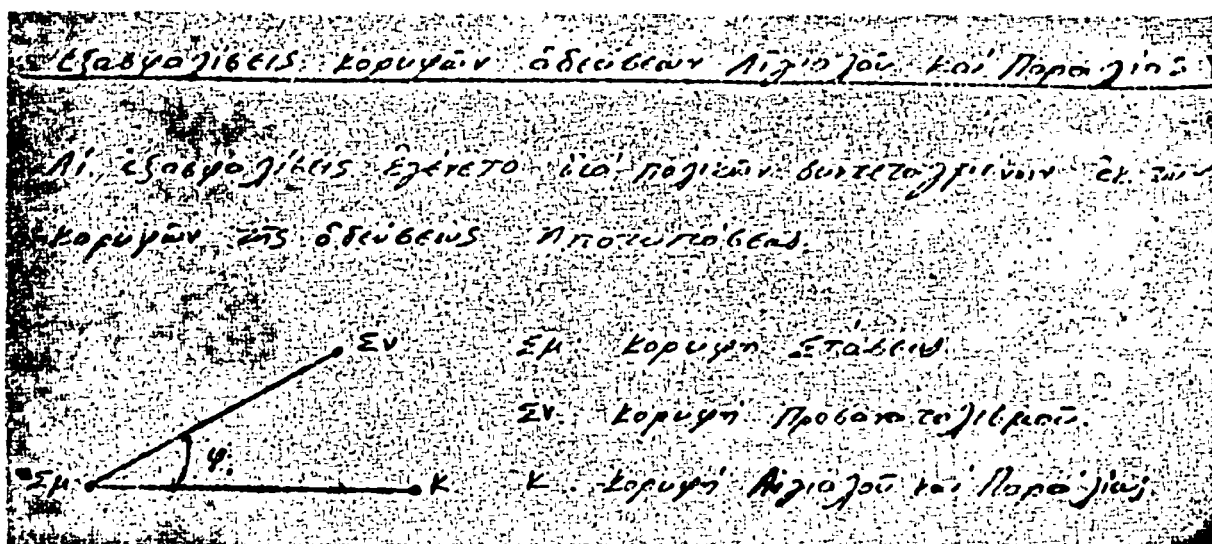 Ἐξασφαλίσεις κορυφῶν ὁδεύσεων Αἰγιαλοῦ καὶ Παραλίας
Αἱ ἐξασφαλίσεις ἐγένετο διὰ πολικῶν συντεταγμένων ἐκ τῶν
κορυφῶν τῆς ὁδεύσεως Ἀποτυπώσεως.
Σν Σμ. Κορυφὴ Στάσεως.
Σν. Κορυφὴ Προσανατολισμοῦ.
φ.
Σμ Κ Κ. Κορυφὴ Αἰγιαλοῦ καὶ Παραλίας.